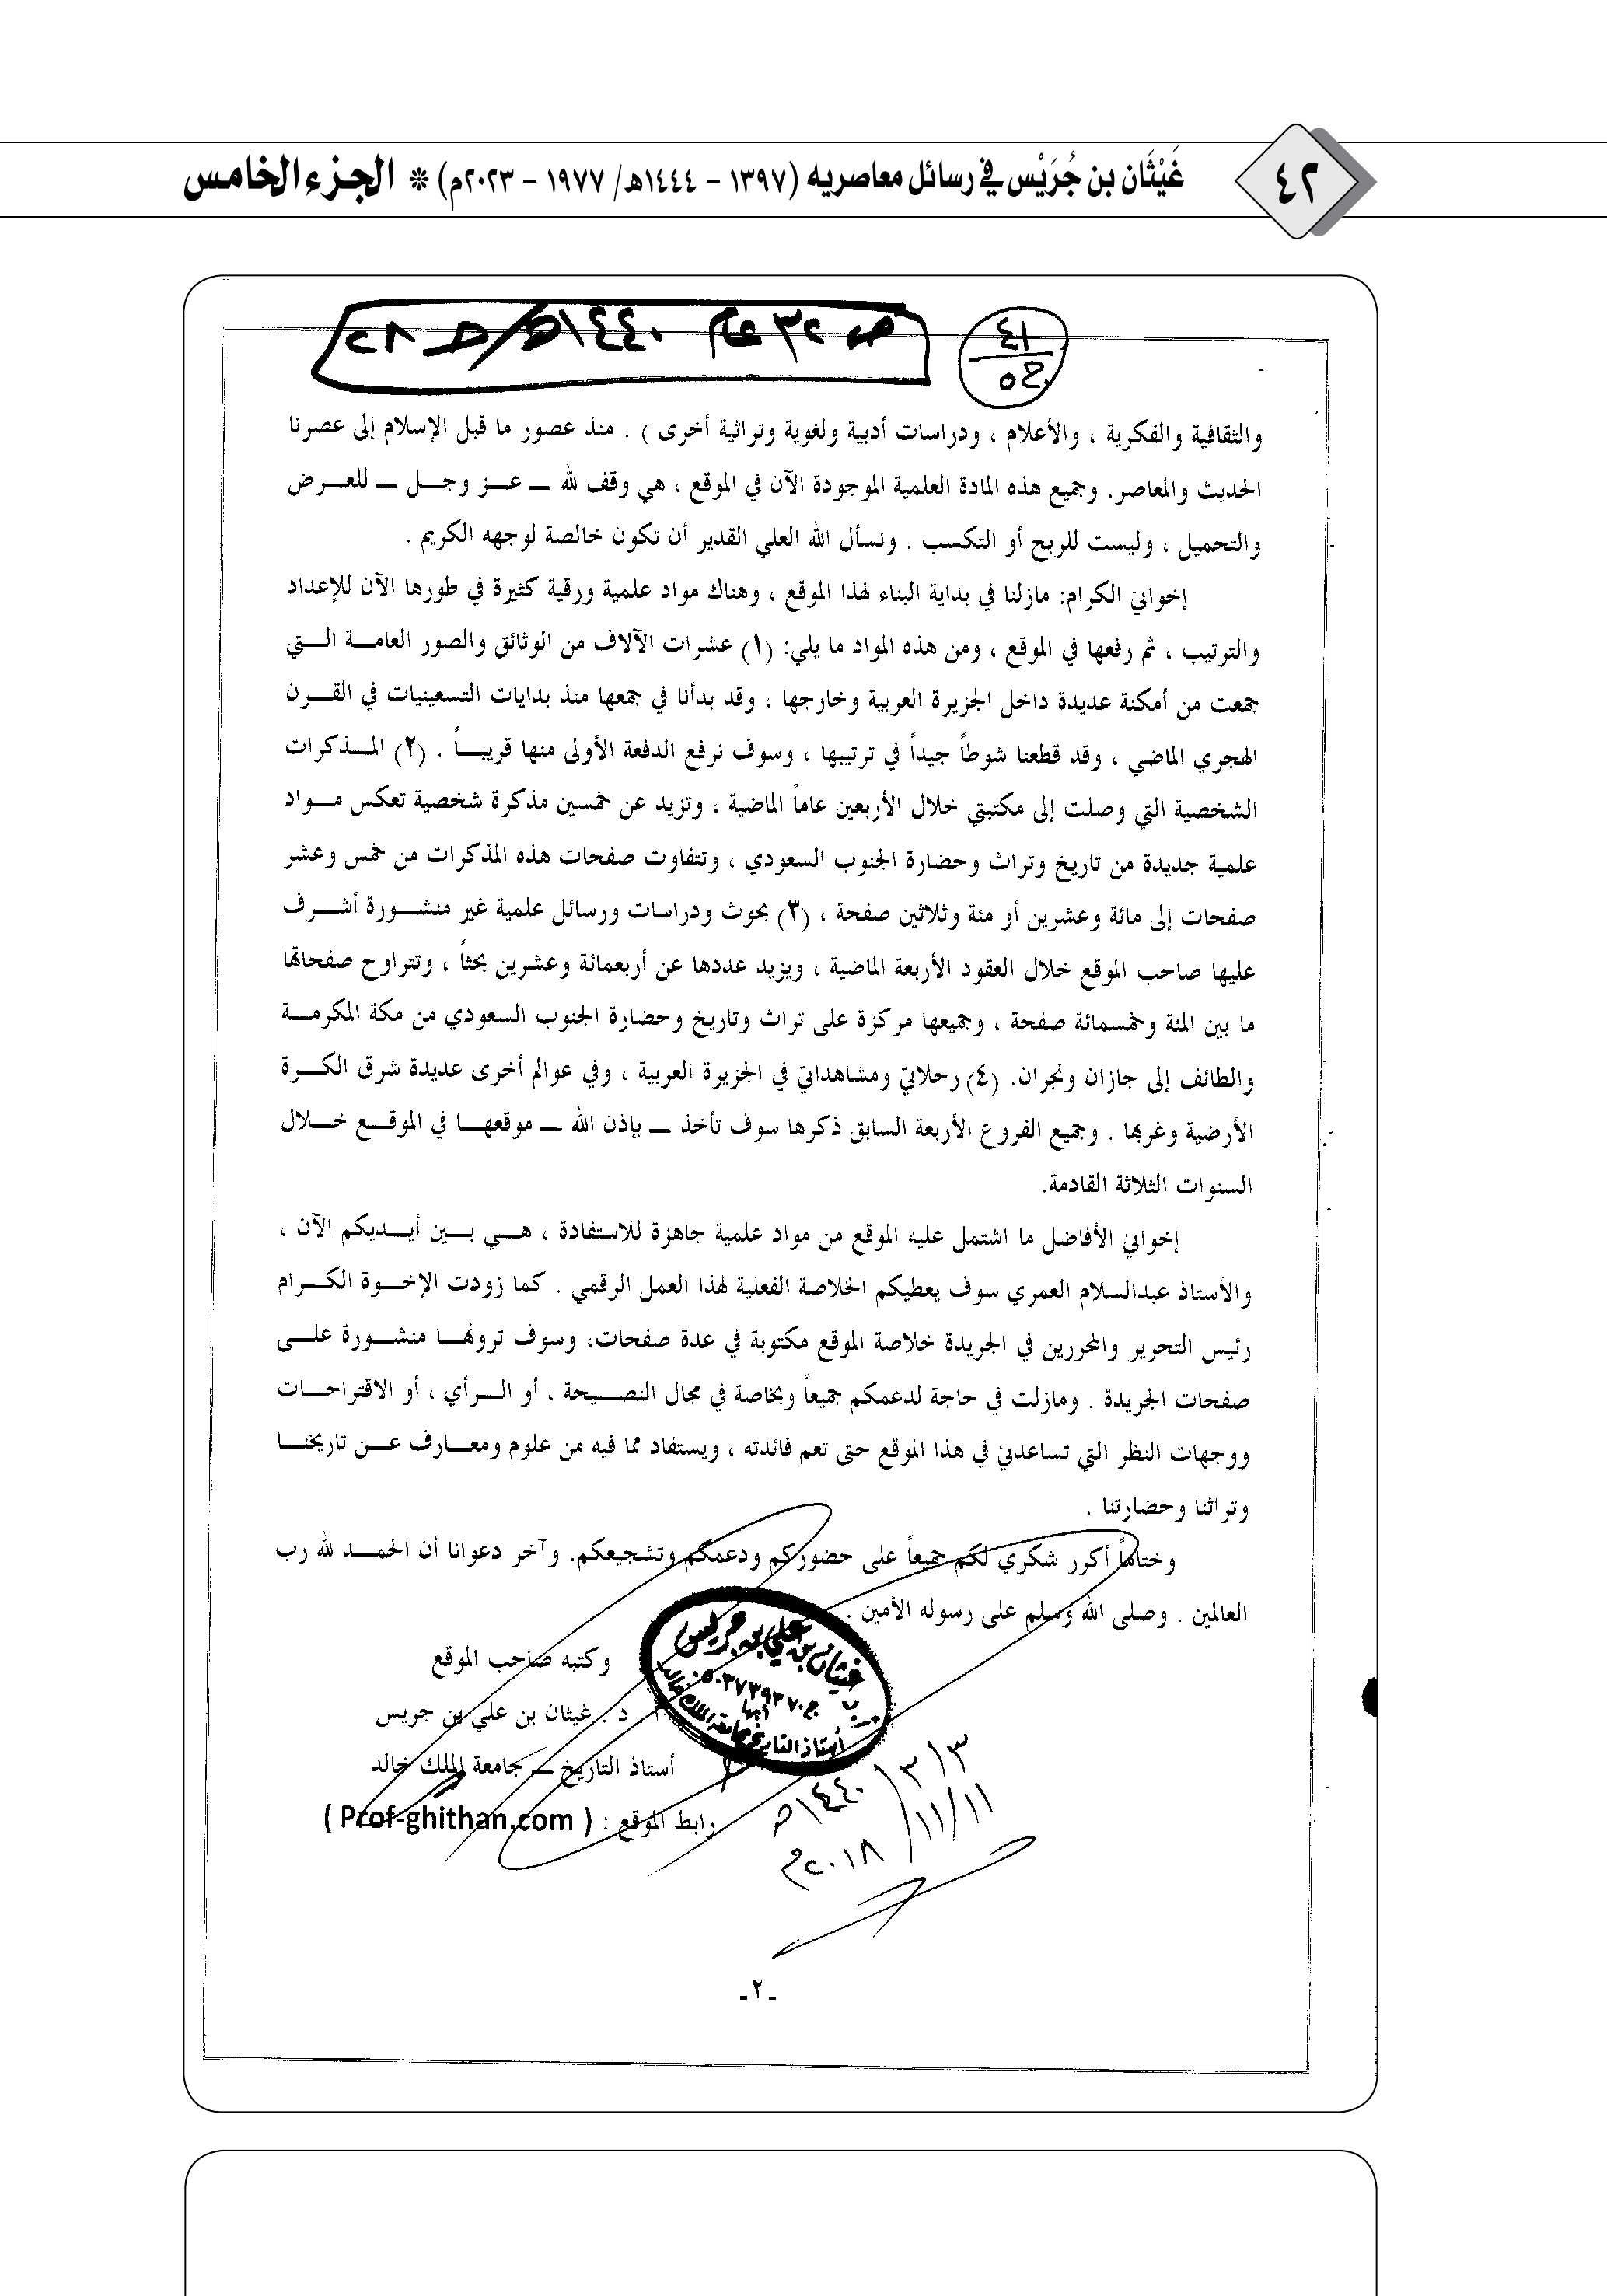 ٤٢
غَيْثَان بن جُرَيْس في رسائل معاصريه (١٣٩٧ - ١٤٤٤هـ/ ١٩٧٧ - ٢٠٢٣م) * الجزء الخامس
٤١
عام ١٤٤٠هـ
والثقافية والفكرية ، والأعلام ، ودراسات أدبية ولغوية وتراثية أخرى ) . منذ عصور ما قبل الإسلام إلى عصرنا
الحديث والمعاصر. وجميع هذه المادة العلمية الموجودة الآن في الموقع ، هي وقف لله ـ عـز وجـل ـ للعـرض
والتحميل ، وليست للربح أو التكسب . ونسأل الله العلي القدير أن تكون خالصة لوجهه الكريم .
إخواني الكرام: مازلنا في بداية البناء لهذا الموقع ، وهناك مواد علمية ورقية كثيرة في طورها الآن للإعداد
والترتيب ، ثم رفعها في الموقع ، ومن هذه المواد ما يلي: (١) عشرات الآلاف من الوثائق والصور العامـة الـتي
جمعت من أمكنة عديدة داخل الجزيرة العربية وخارجها ، وقد بدأنا في جمعها منذ بدايات التسعينيات في القـرن
الهجري الماضي ، وقد قطعنا شوطاً جيداً في ترتيبها ، وسوف نرفع الدفعة الأولى منها قريبـاً . (٢) المـذكرات
الشخصية التي وصلت إلى مكتبتي خلال الأربعين عاماً الماضية ، وتزيد عن خمسين مذكرة شخصية تعكس مـواد
علمية جديدة من تاريخ وتراث وحضارة الجنوب السعودي ، وتتفاوت صفحات هذه المذكرات من خمس وعشر
صفحات إلى مائة وعشرين أو مئة وثلاثين صفحة ، (٣) بحوث ودراسات ورسائل علمية غير منشـورة أشـرف
عليها صاحب الموقع خلال العقود الأربعة الماضية ، ويزيد عددها عن أربعمائة وعشرين بحثاً ، وتتراوح صفحاتها
ما بين المئة وخمسمائة صفحة ، وجميعها مركزة على تراث وتاريخ وحضارة الجنوب السعودي من مكة المكرمـة
والطائف إلى جازان ونجران. (٤) رحلاتي ومشاهداتي في الجزيرة العربية ، وفي عوالم أخرى عديدة شرق الكـرة
الأرضية وغربها . وجميع الفروع الأربعة السابق ذكرها سوف تأخذ ـ بإذن الله ـ موقعهـا في الموقـع خـلال
السنوات الثلاثة القادمة.
إخواني الأفاضل ما اشتمل عليه الموقع من مواد علمية جاهزة للاستفادة ، هـي بـين أيـديكم الآن ،
والأستاذ عبدالسلام العمري سوف يعطيكم الخلاصة الفعلية لهذا العمل الرقمي . كما زودت الإخـوة الكـرام
رئيس التحرير والمحررين في الجريدة خلاصة الموقع مكتوبة في عدة صفحات، وسوف ترونهـا منشـورة علـى
صفحات الجريدة . ومازلت في حاجة لدعمكم جميعاً وبخاصة في مجال النصـيحة ، أو الـرأي ، أو الاقتراحـات
ووجهات النظر التي تساعدني في هذا الموقع حتى تعم فائدته ، ويستفاد مما فيه من علوم ومعـارف عـن تاريخنـا
وتراثنا وحضارتنا .
وختاماً أكرر شكري لكم جميعاً على حضوركم ودعمكم وتشجيعكم. وآخر دعوانا أن الحمـد لله رب
العالمين . وصلى الله وسلم على رسوله الأمين .
غيثان بن علي بن جريس
ج ٠٥٠٣٧٣٩٣٧٠
أبها
أستاذ التاريخ بجامعة الملك خالد
وكتبه صاحب الموقع
أ . د . غيثان بن علي بن جريس
أستاذ التاريخ ـ جامعة الملك خالد
رابط الموقع : ( Prof-ghithan.com )
٣/٣/١٤٤٠هـ
١١/١١/٢٠١٨م
ـ ٢ ـ